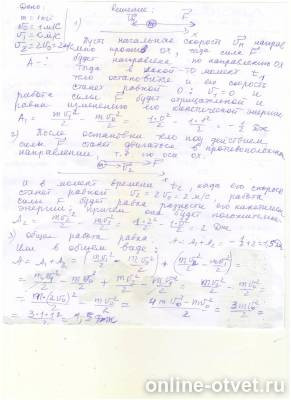 Дано: Решение:
m = 1 кг 1)
V₀ = 1 м/с Пусть начальная скорость V₀ направ
V₁ = 0 м/с лена против ОХ, тогда сила F
V₂ = 2V₀ = 2 м/с будет направлена по направлению ОХ
A - ? тогда в какой-то момент t₁
тело остановится и его скорость
станет равной 0: V₁ = 0,
работа силы F будет отрицательной и
равна изменению его кинетической энергии
A₁ = mV₁²/2 - mV₀²/2 = 1·0²/2 - 1·1²/2 = -1/2 Дж
2) После остановки тело под действием
силы F станет двигаться в противоположном
направлении, т.е. по оси ОХ.
V₂
а в момент времени t₂, когда его скорость
станет равной V₂ = 2V₀ = 2 м/с работа
силы F будет равна разности его кинетической
энергии, причем она будет положительна
A₂ = mV₂²/2 - mV₁²/2 = 1·2²/2 - 1·0²/2 = 2 Дж
3) Общая работа равна A = A₁ + A₂ = -1/2 + 2 = 1,5 Дж
Или в общем виде:
A = A₁ + A₂ = (mV₁²/2 - mV₀²/2) + (mV₂²/2 - mV₁²/2) =
= mV₁²/2 - mV₀²/2 + mV₂²/2 - mV₁²/2 = mV₂²/2 - mV₀²/2 =
= m(2V₀)²/2 - mV₀²/2 = 4mV₀² - mV₀²/2 = 3mV₀²/2 =
= 3·1·1²/2 = 1,5 Дж
online-otvet.ru